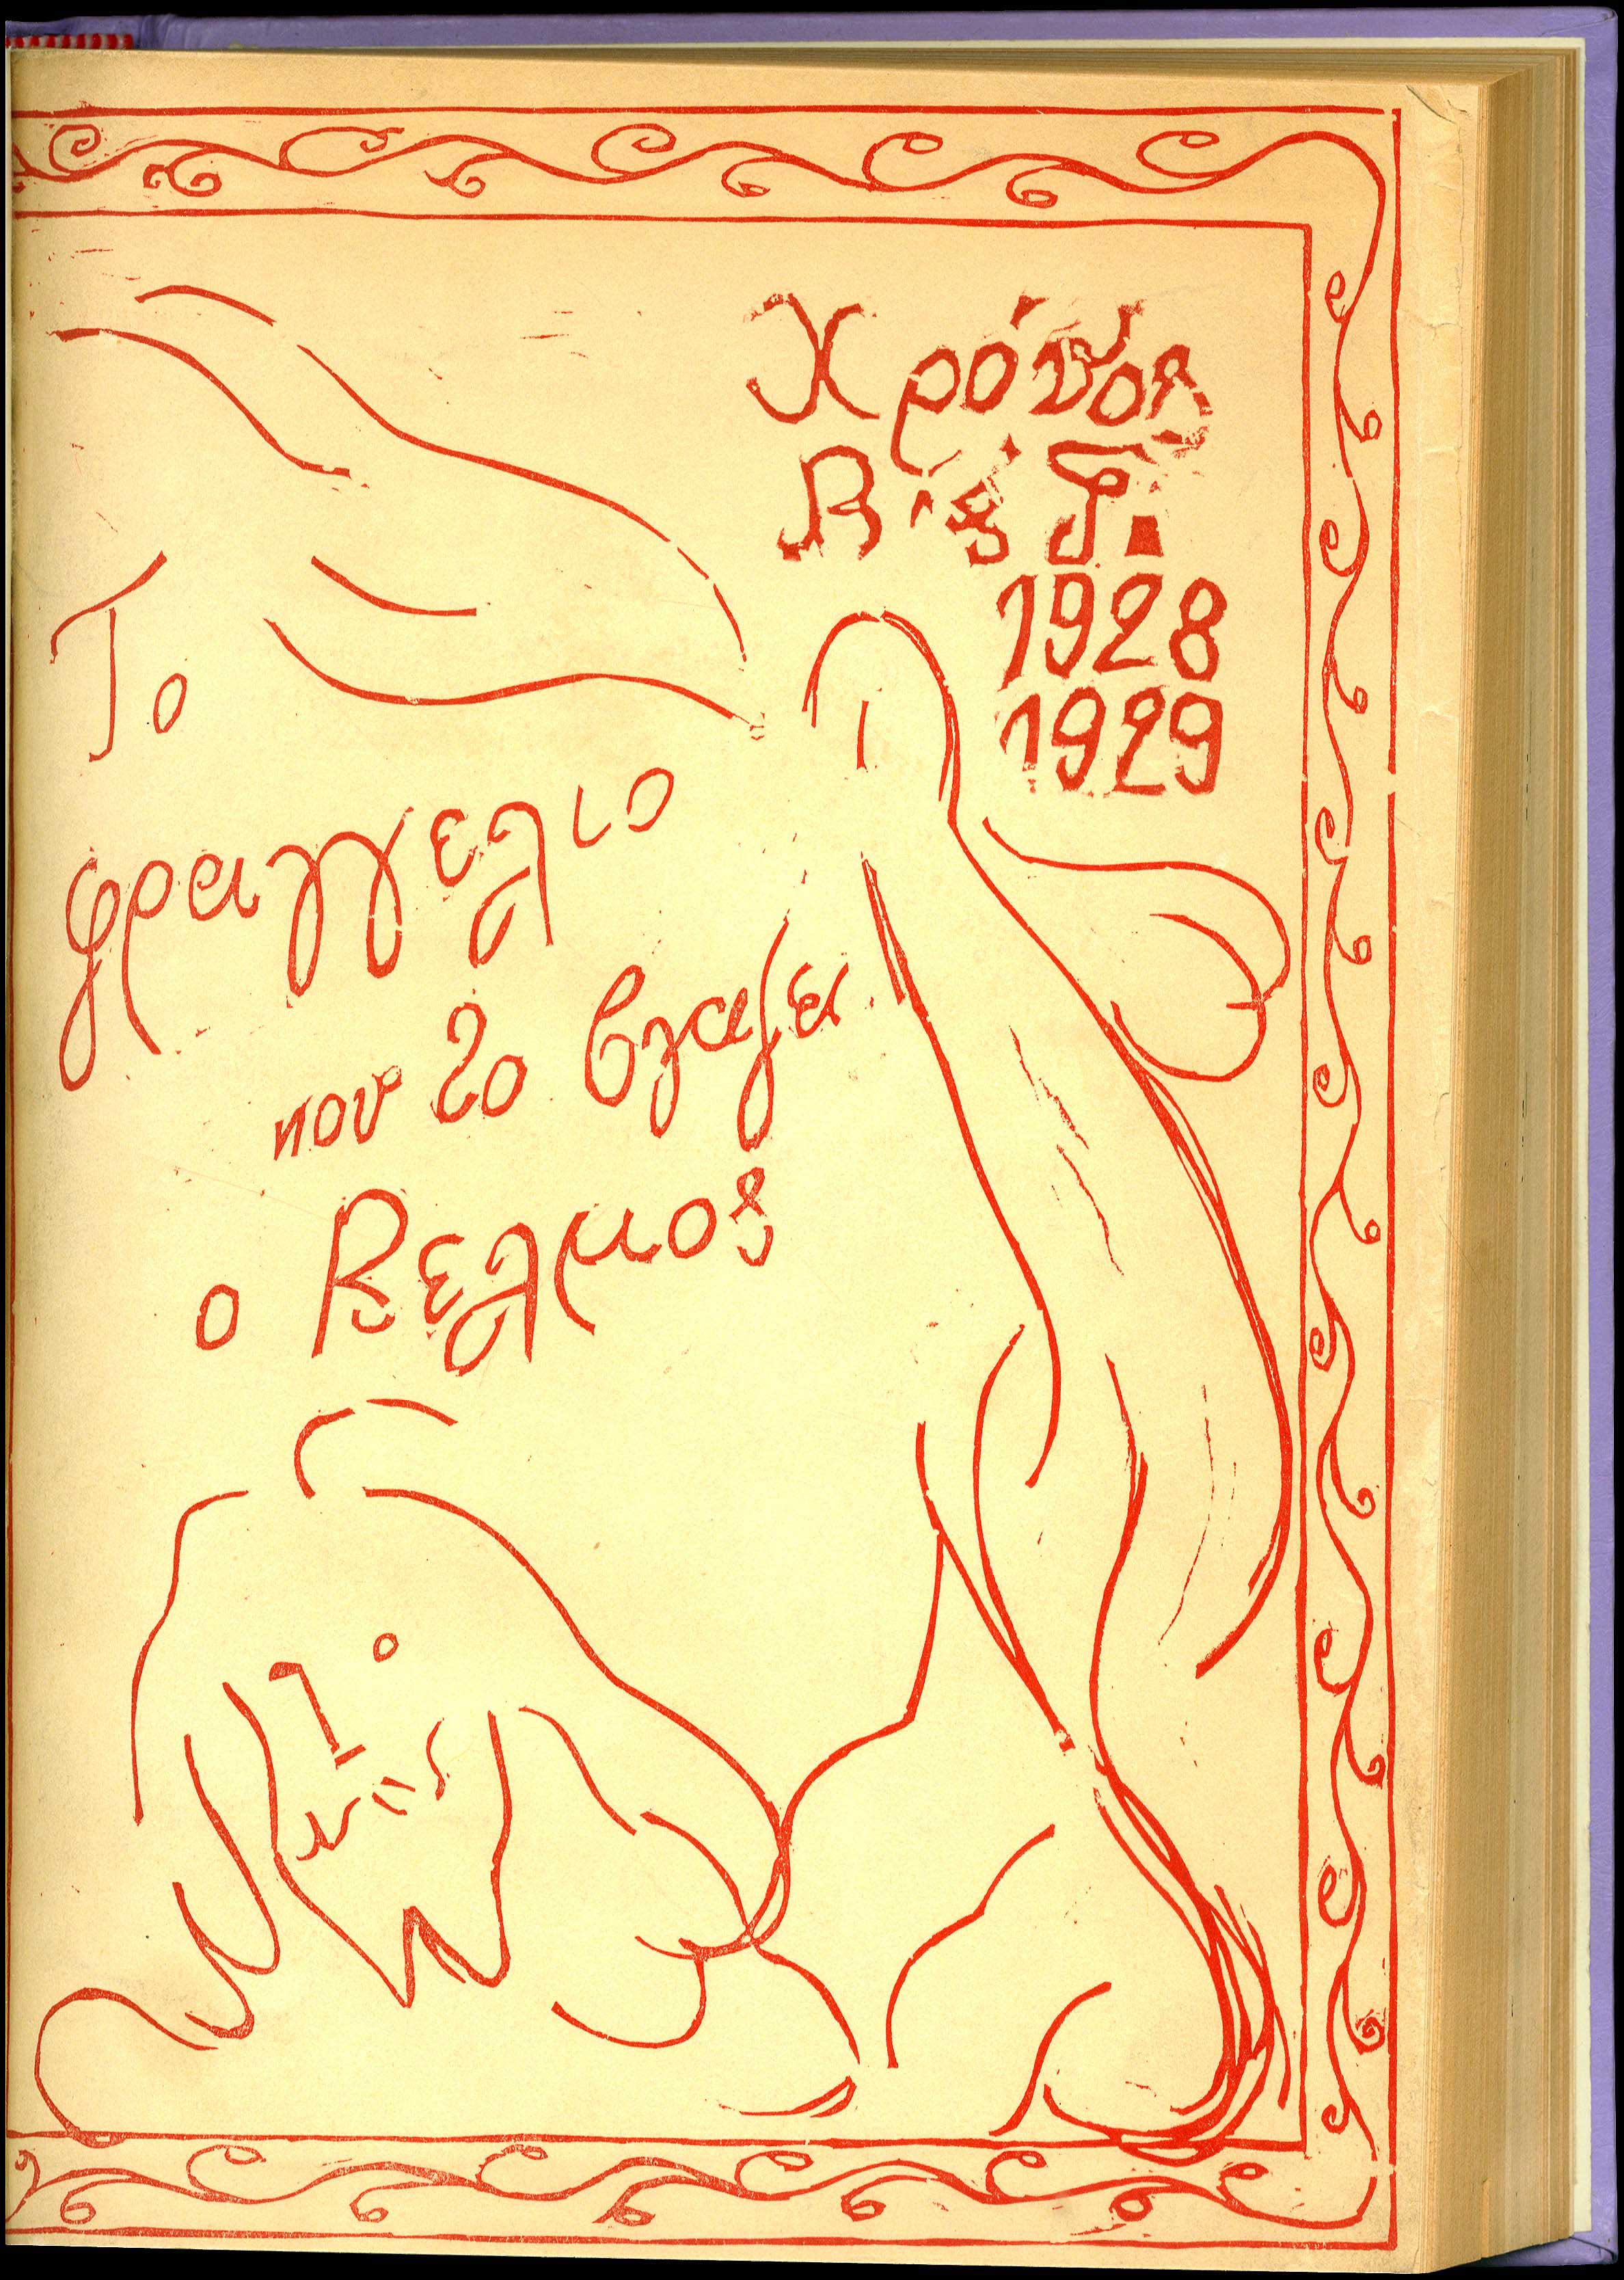 Χρόνος
Β' ϗ Γ'.
1928
1929
Το
φραγγελιο
που το βγαζει
ο Βελμος